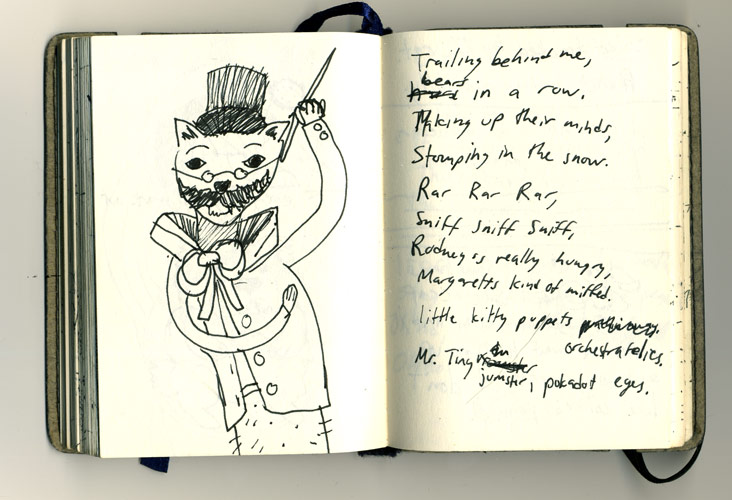 Trailing behind me,
bears
in a row.
Making up their minds,
Stomping in the snow.
Rar Rar Rar,
Sniff sniff sniff,
Rodney is really hungry,
Margaretts kind of miffed.
little kitty puppets
orchestratelies.
Mr. Tiny
jumster, pokadot eyes.